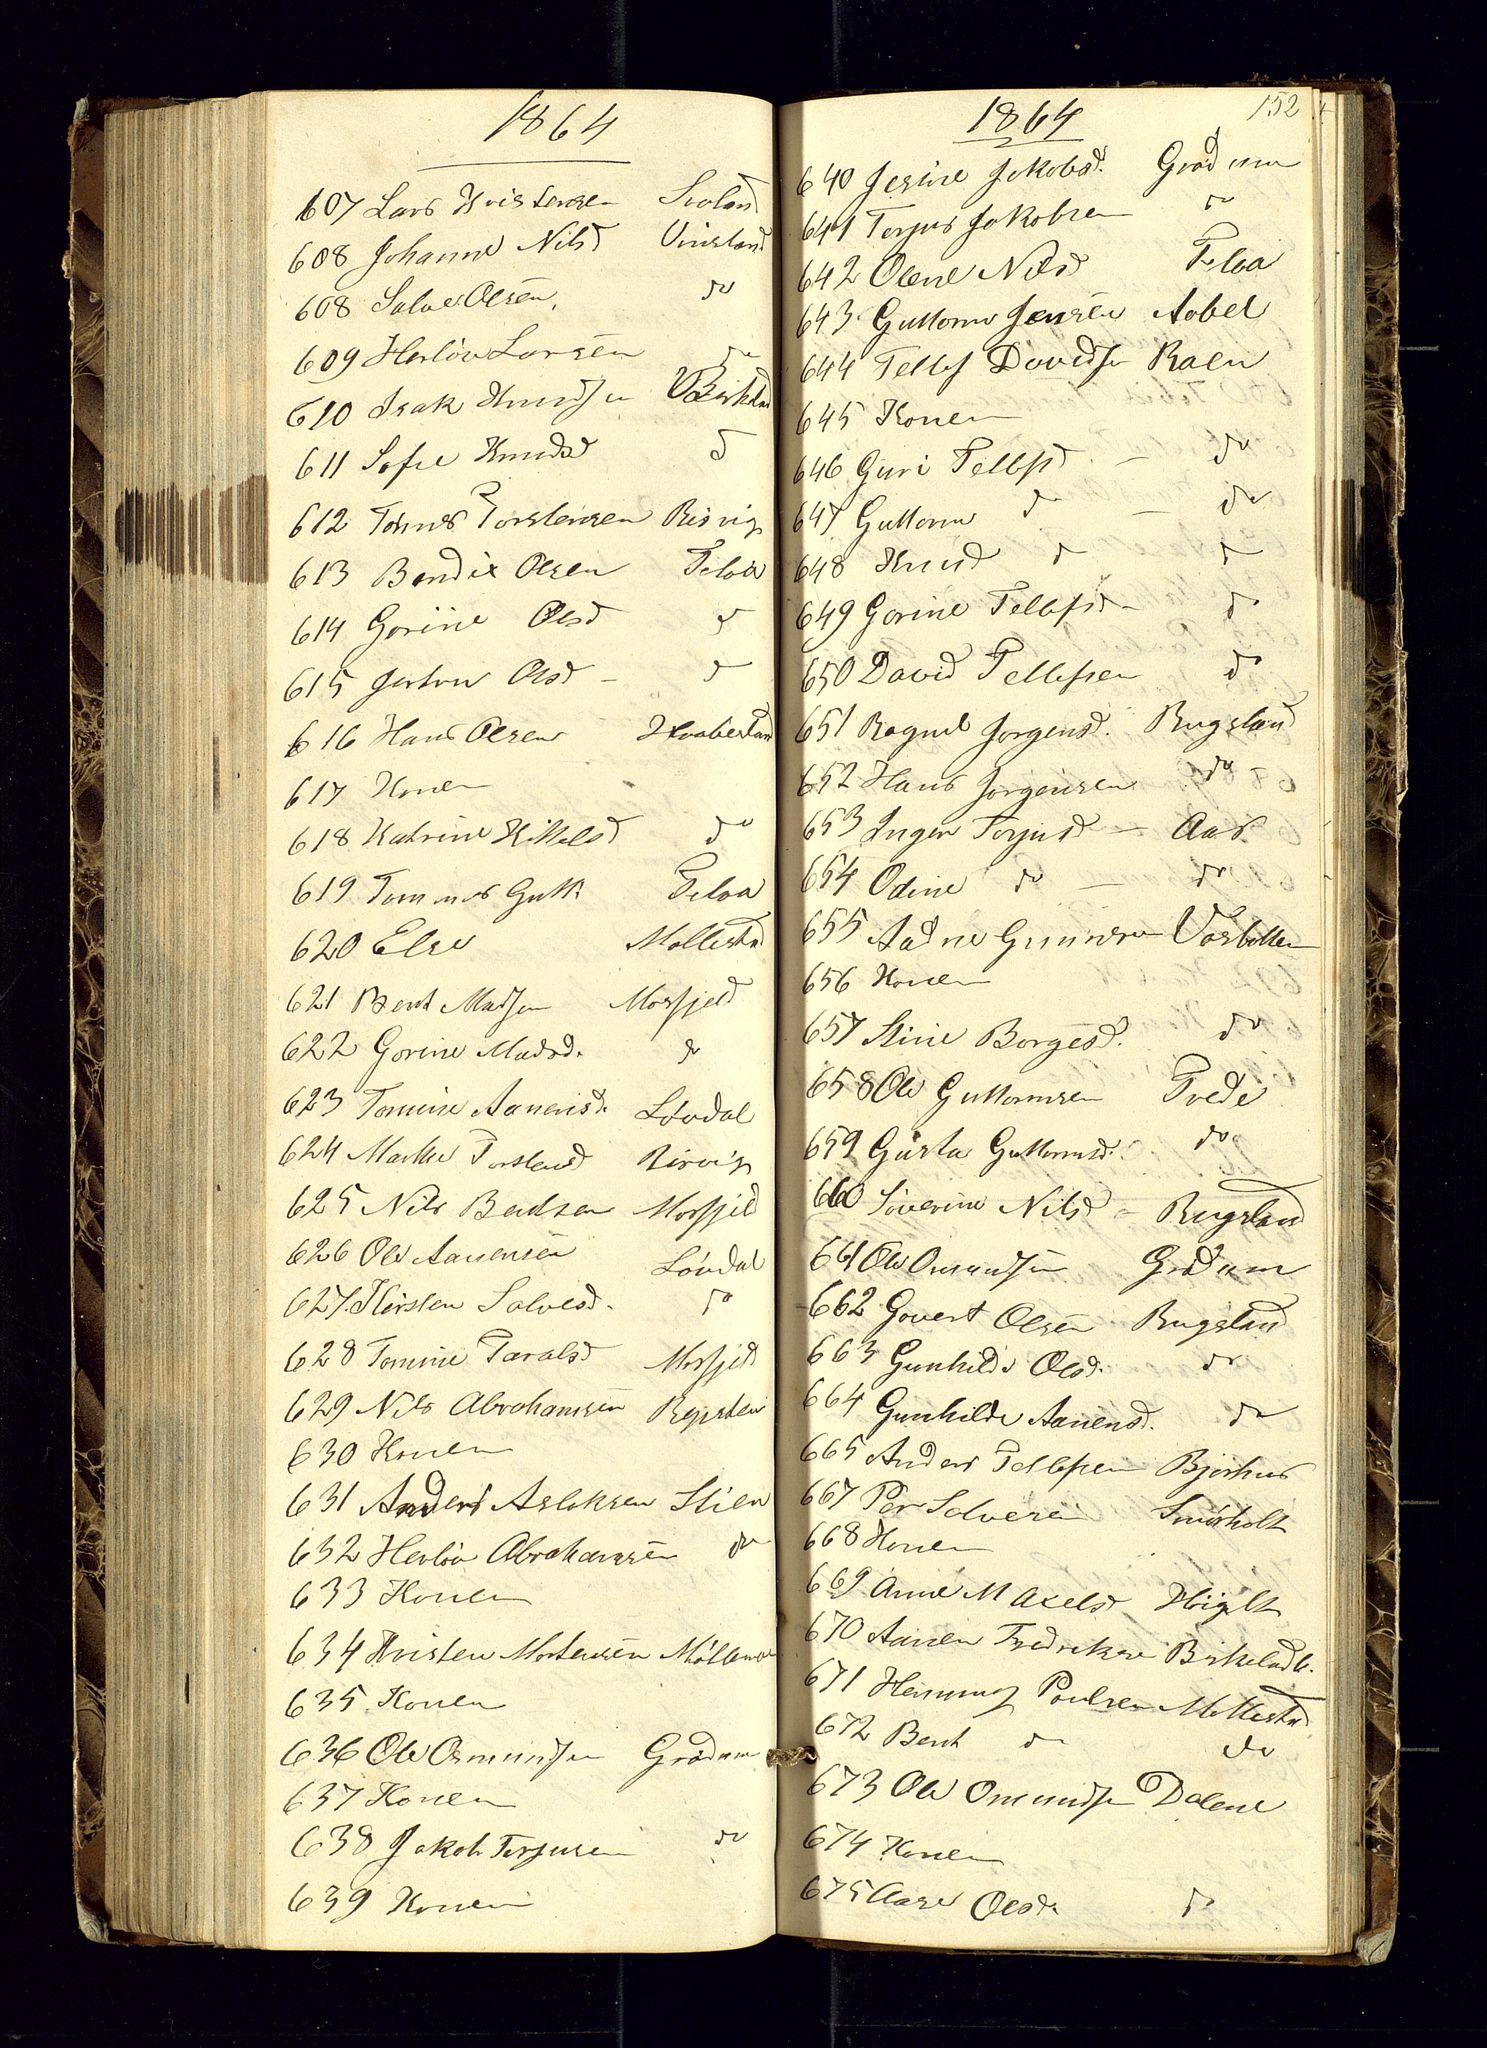 1864
607 Lars Kristensen Svaland
608 Johanne Nilsd Vinsland
608 Salve Olsen, do
609 Herløv Larsen do
610 Isak Knudsen V Birkeland
611 Sofie Knudsd do
612 Tønnes Torstensen Risvig
613 Bendix Olsen Feloa
614 Gorine Olsd do
615 Jertru Olsd - do
616 Hans Olsen Haaberland
617 Konen
618 Katrine Kittelsd do
619 Tommes Gutt. Feloa
620 Else Mollestad
621 Bent Madsen Mosfjeld
622 Gorine Madsd. do
623 Tomine Aanensd. Løvdal
624 Marthe Torstensd Risvig
625 Nils Bentsen Mosfjeld
626 Ole Aanensen Løvdal
627 Kirsten Salvesd. do
628 Tomine Taralsd Mosfjeld
629 Nils Abrahamsen Repsten
630 Konen
631 Anders Aslaksen Stien
632 Herløv Abrahamsen do
633 Konen
634 Kristen Mortensen Møllemoe
635 Konen
636 Ole Osmundsen Grødum
637 Konen
638 Jakob Terjusen do
639 Konen
1864
152
640 Jesine Jakobsd. Grødum
641 Terjus Jakobsen do
642 Olene Nilsd Feloa
643 Guttorm Jensen Aabel
644 Tellef Davidsen Raen
645 Konen
646 Guri Tellefsd - do
647 Guttorm do - do
648 Knud do do
649 Gorine Tellefsd - do
650 David Tellefsen do
651 Ragnel Jørgensd. Rugsland
652 Hans Jørgensen do
653 Inger Terjusd - Aas
654 Odine do - do
655 Aadne Gunnarsen Vasbotten
656 Konen
657 Stine Børgesd. do
658 Ole Guttormsen Tvede
659 Gusta Guttormsd. do
660 Søverine Nilsd - Rugsland
661 Ole Omundsen Grødum
662 Govert Olsen Rugsland
663 Gunhilde Olsd. do
664 Gunhilde Aanensd. do
665 Anders Tellefsen Bjorhus
667 Per Salvesen Smørholt
668 Konen
669 Anne M Axelsd Høigilt
670 Aanen Fredriksen Birkelandb.
671 Hemming Poulsen Mollestad
672 Bent do do
673 Ole Omundsen Dalene
674 Konen
675 Aase Olsd. do